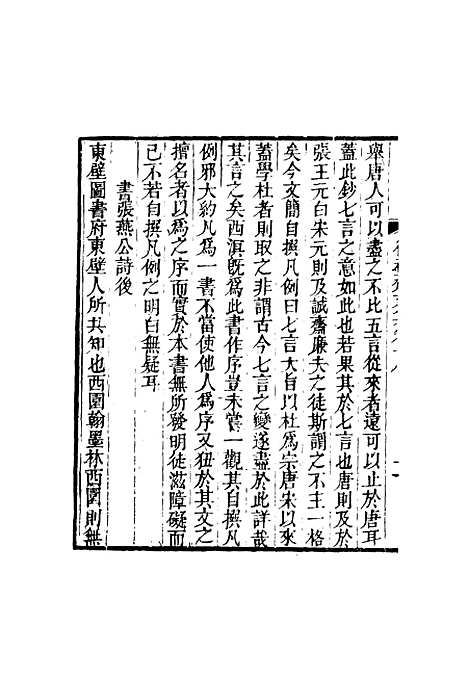 舉唐人可以盡之不比五言從來者遠可以止於唐耳
蓋此鈔七言之意如此也若果其於七言也唐則及於
張王元白宋元則及誠齋廉夫之徒斯謂之不主一格
矣今文簡自撰凡例曰七言大旨以杜爲宗唐宋以來
蓋學杜者則取之非謂古今七言之變遂盡於此詳哉
其言之矣西溟旣爲此書作序豈未嘗一觀其自撰凡
例邪大約凡爲一書不當使他人爲序又狃於其文之
擅名者以爲之序而實於本書無所發明徒滋障礙而
已不若自撰凡例之明白無疑耳
書張燕公詩後
東壁圖書府東壁人所共知也西園翰墨林西園則無